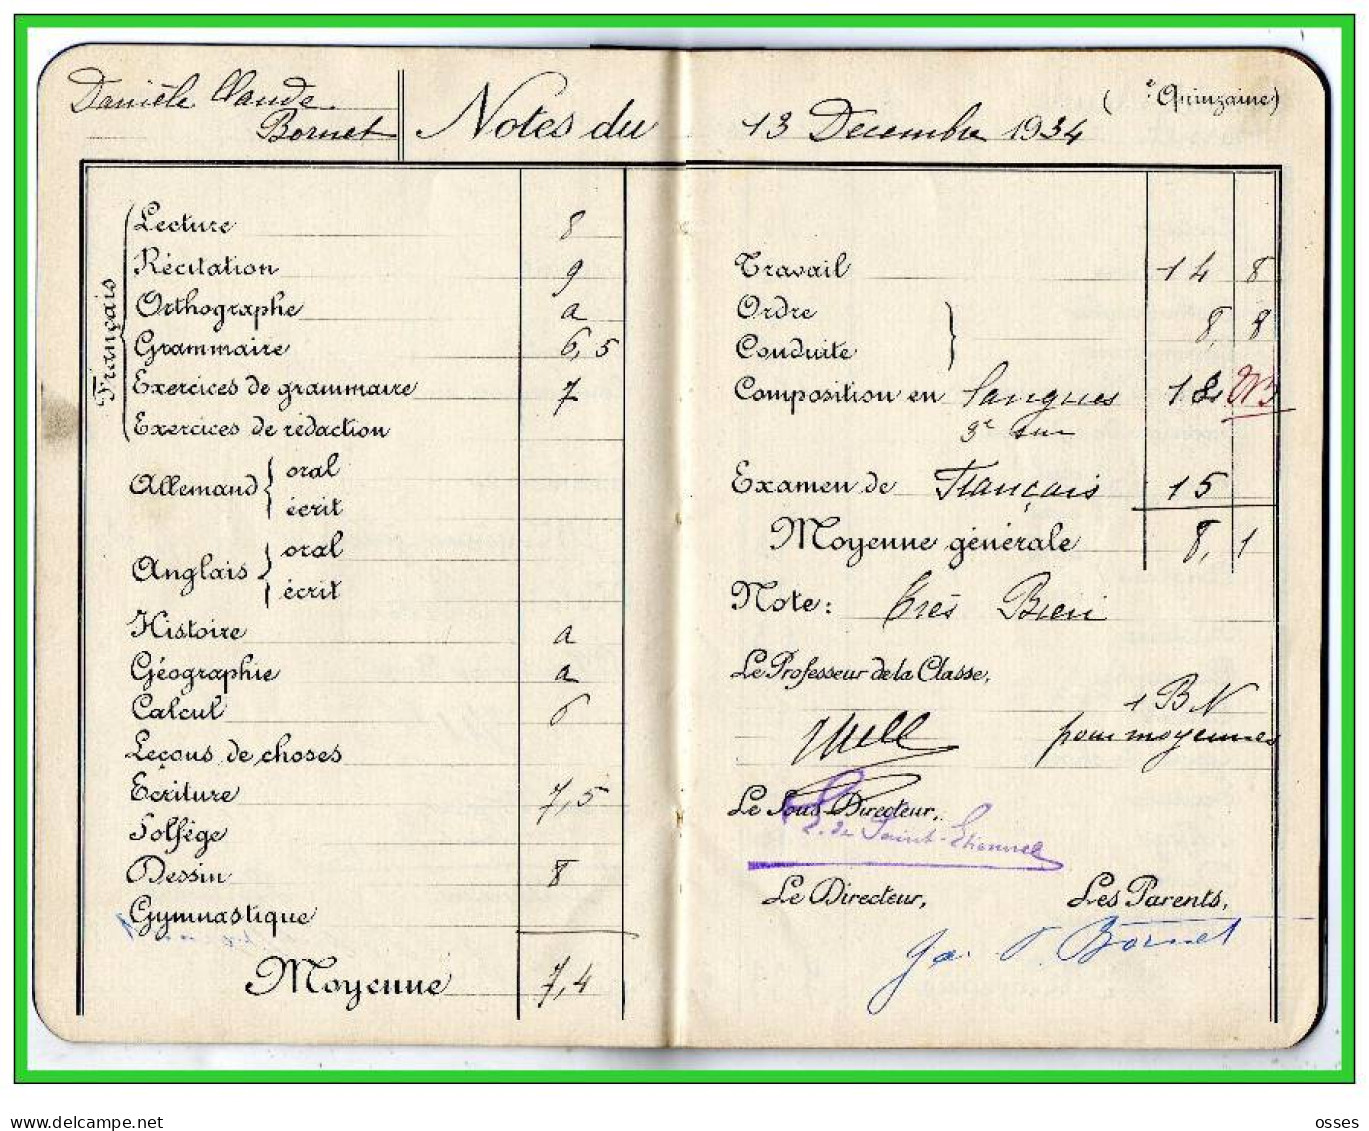 Danièle Claude
Bornet
Notes du 13 Decembre 1934
( e Quinzaine)
Français
Lecture 8
Récitation 9
Orthographe a
Grammaire 6,5
Exercices de grammaire 7
Exercices de rédaction
Allemand { oral
écrit
Anglais { oral
écrit
Histoire a
Géographie a
Calcul 6
Leçons de choses
Ecriture 7,5
Solfège
Dessin 8
Gymnastique
Moyenne 7,4
Travail 14 8
Ordre
8, 8
Conduite
Composition en Langues 18
3e sur
Examen de Français 15
Moyenne générale 8,1
Note: Très Bien
Le Professeur de la Classe,
1 BN
pour moyennes
Le Sous Directeur,
L. de Saint-Etienne
Le Directeur, Les Parents,
Bornet
www.delcampe.net
osses